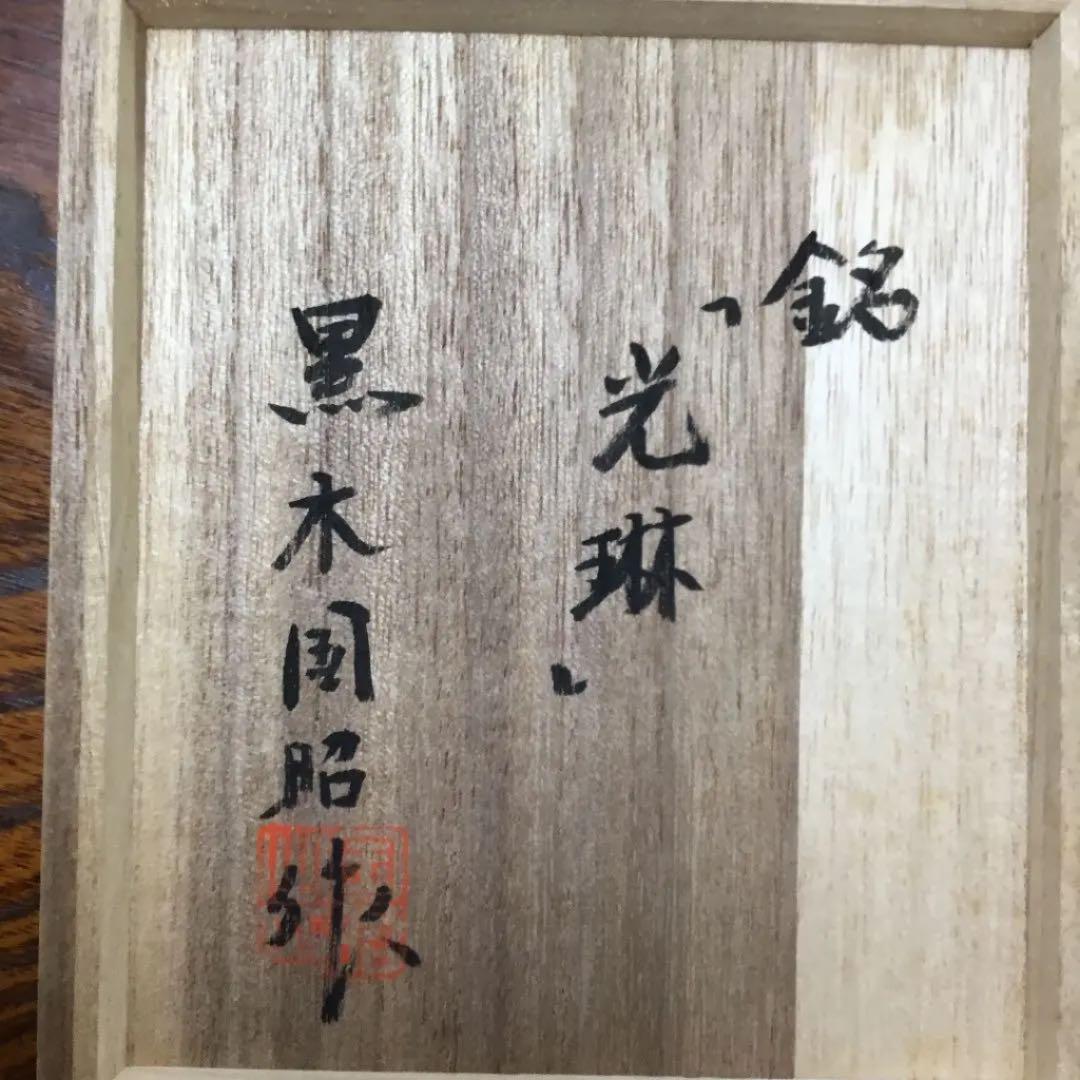 銘
「光琳」
黒木国昭作